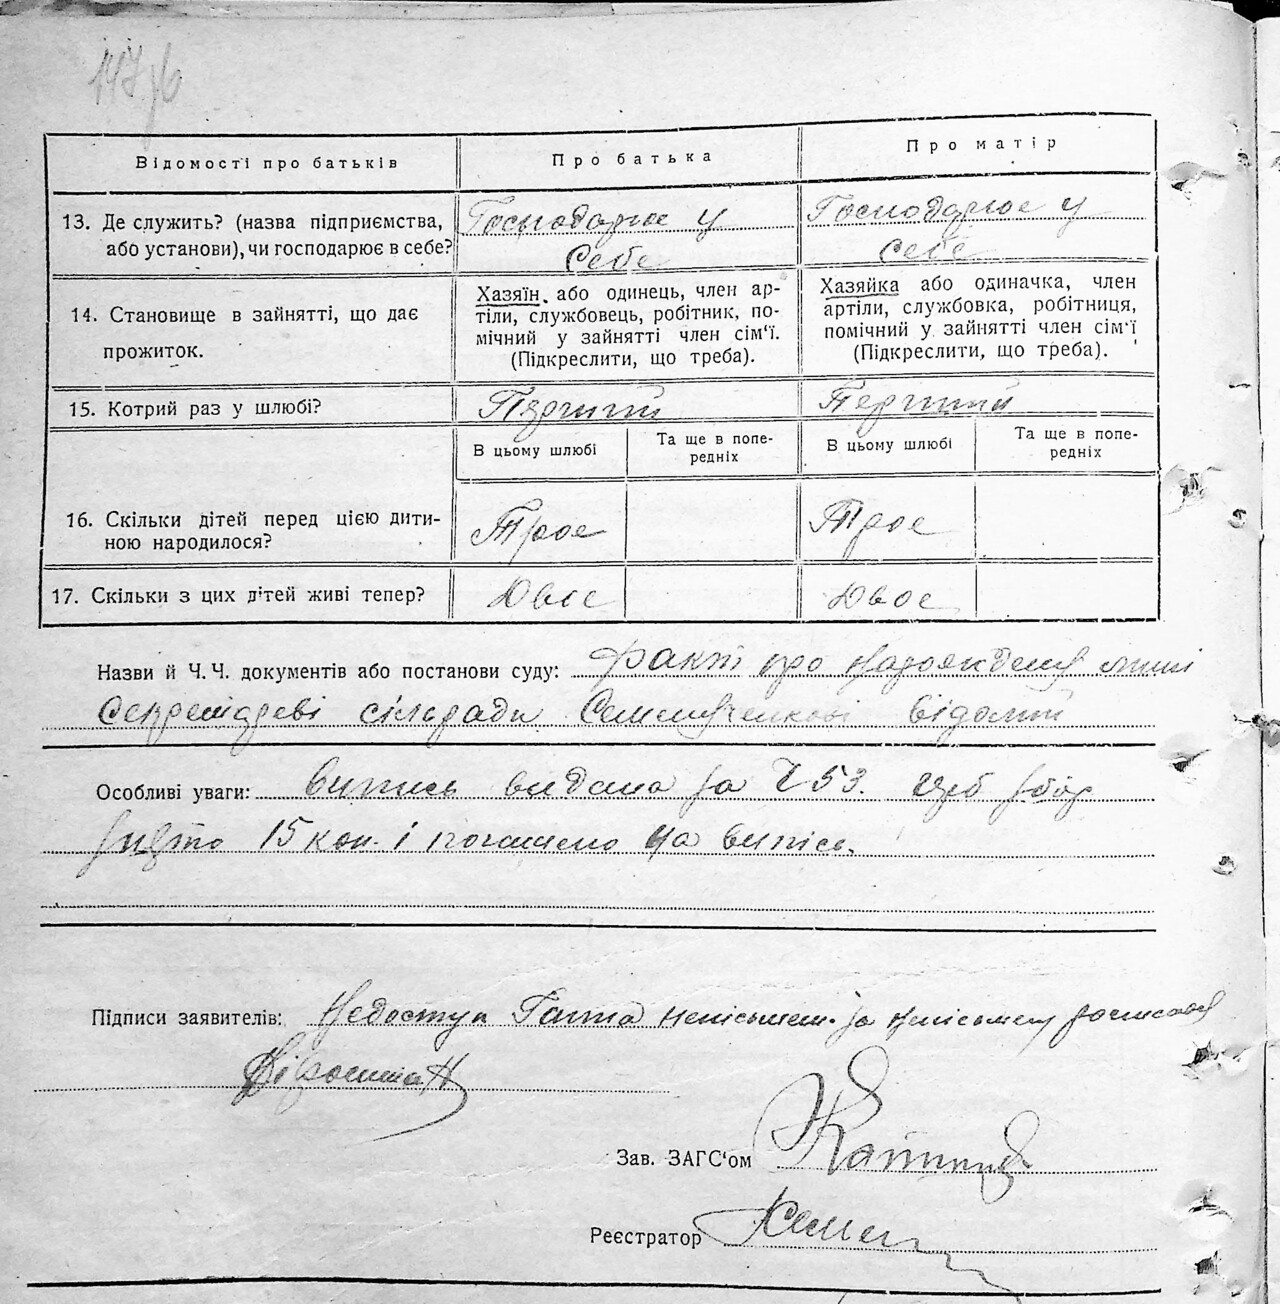 147зб
Відомості про батьків
Про батька
Про матір
13. Де служить? (назва підприємства,
або установи), чи господарює в себе?
Господарює у
себе
Господарює у
себе
14. Становище в зайнятті, що дає
прожиток.
Хазяїн, або одинець, член ар-
тіли, службовець, робітник, по-
мічний у зайнятті член сім'ї.
(Підкреслити, що треба).
Хазяйка або одиначка, член
артіли, службовка, робітниця,
помічний у зайнятті член сім'ї
(Підкреслити, що треба).
15. Котрий раз у шлюбі?
Перший
Перший
В цьому шлюбі
Та ще в попе-
редніх
В цьому шлюбі
Та ще в попе-
редніх
16. Скільки дітей перед цією дити-
ною народилося?
Троє
Троє
17. Скільки з цих дітей живі тепер?
Двоє
Двоє
Назви й Ч. Ч. документів або постанови суду: факт про народження
Секретареві сільради Семенченкові відомий
Особливі уваги: Випись видана за Ч 53. збір
взято 15 коп. і погашено на виписі.
Підписи заявителів: Недоступ Ганна неписьмен. за неписьмену
Зав. ЗАГС'ом
Реєстратор Семен